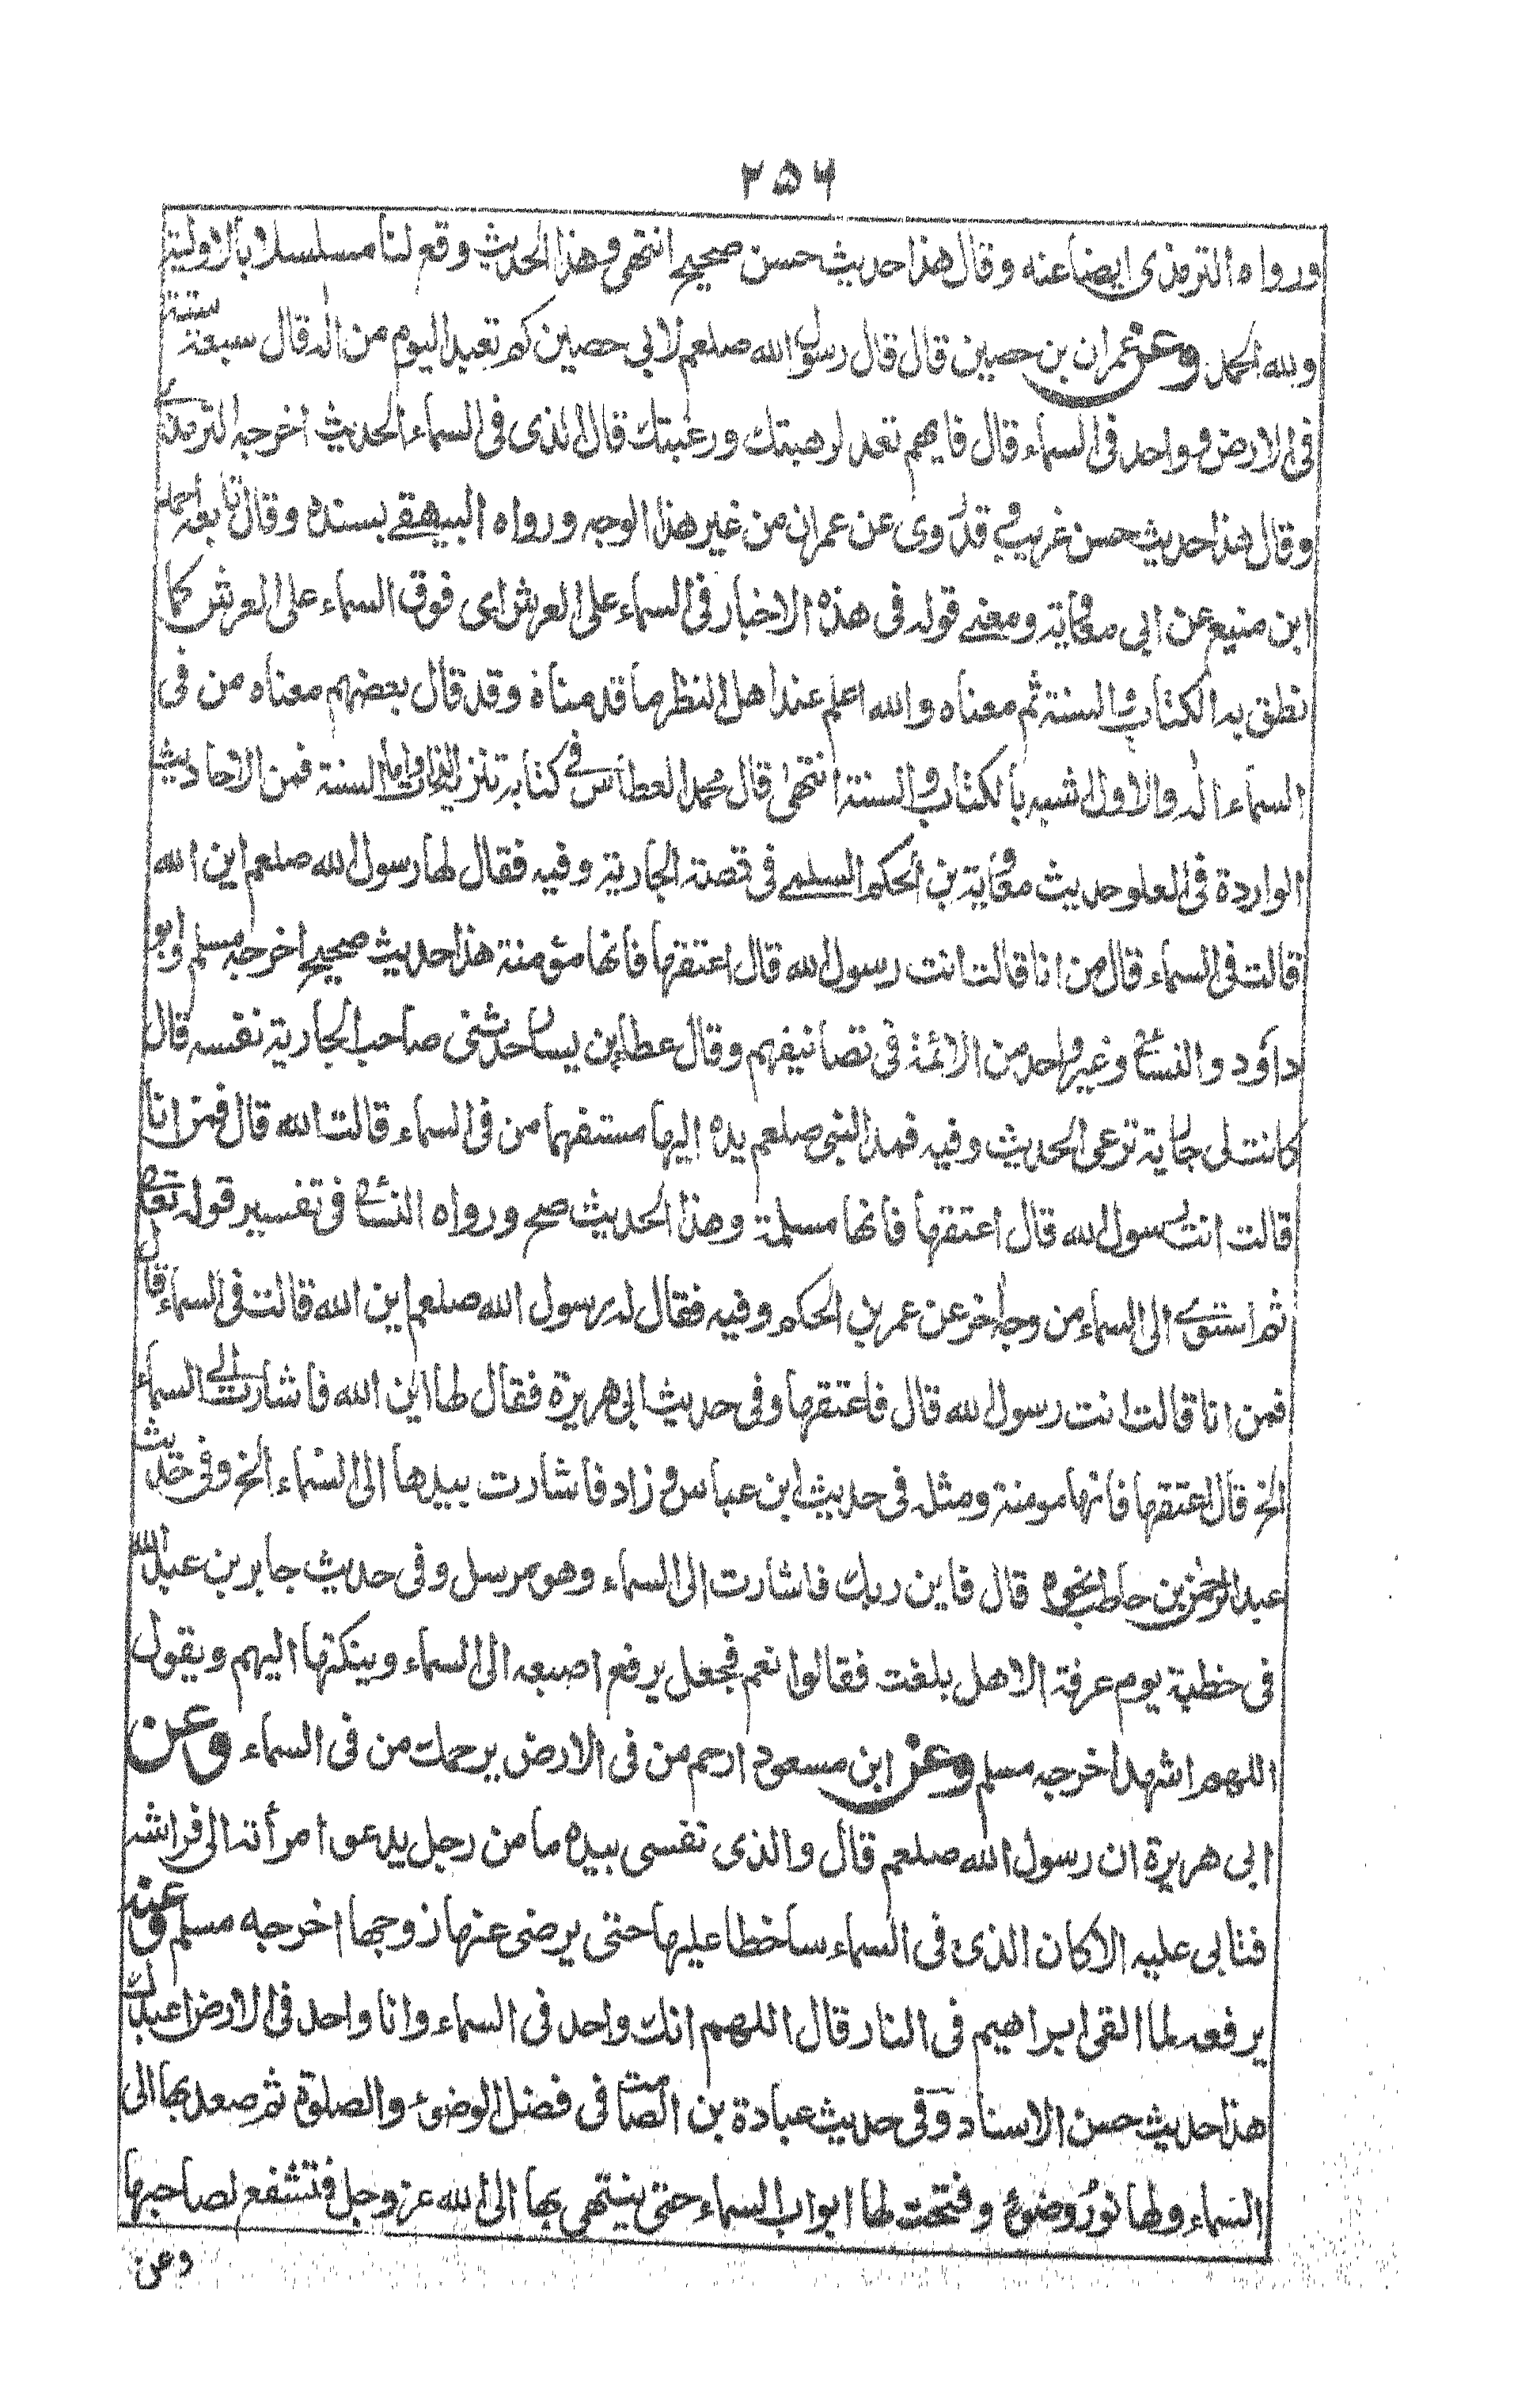 ٢٥٦
ورواه الترمذى ايضا عنه وقال هذا حديث حسن صحيح انتهى وهذا الحديث وقع لنا مسلسلا بالاولية
ولله الحمد وعن عمران بن حصين قال قال رسول الله صلعم لابى حصين كم تعبد اليوم من اله قال سبعة ستة
فى الارض وواحد فى السماء قال فايهم تعد لرهبتك ورغبتك قال الذى فى السماء الحديث اخرجه الترمذى
وقال هذا حديث حسن غريب وقد روى عن عمران من غير هذا الوجه ورواه البيهقى بسنده وقال تابعه احمد
ابن منيع عن ابى معوية ومعنى قوله فى هذه الاخبار فى السماء على العرش اى فوق السماء على العرش كما
نطق به الكتاب والسنة ثم معناه والله اعلم عند اهل النظر ما قدمناه وقد قال بعضهم معناه من فى
السماء اله والاول اشبه بالكتاب والسنة انتهى قال محمد العطاس فى كتابه تنزيه الذات والسنة فمن الاحاديث
الواردة فى العلو حديث معوية بن الحكم السلمى فى قصة الجارية وفيه فقال لها رسول الله صلعم اين الله
قالت فى السماء قال من انا قالت انت رسول الله قال اعتقها فانها مؤمنة هذا حديث صحيح اخرجه مسلم وابو
داود والنسائى وغير واحد من الائمة فى تصانيفهم وقال عطاء بن يسار حدثنى صاحب الجارية نفسه قال
كانت لى جارية ترعى الحديث وفيه فمد النبى صلعم يده اليها مستفهما من فى السماء قالت الله قال فمن انا
قالت انت رسول الله قال اعتقها فانها مسلمة وهذا الحديث صح ورواه النسائى فى تفسير قوله تعالى
ثم استوى الى السماء من وجه اخر عن عمر بن الحكم وفيه فقال له رسول الله صلعم اين الله قالت فى السماء قال
فمن انا قالت انت رسول الله قال فاعتقها وفى حديث ابى هريرة فقال لها اين الله فاشارت الى السماء
الخ قال اعتقها فانها مومنة ومثله فى حديث ابن عباس وزاد فاشارت بيدها الى السماء الخ وفى حديث
عبد الرحمن بن حاطب نحوه قال فاين ربك فاشارت الى السماء وهو مرسل وفى حديث جابر بن عبد الله
فى خطبة يوم عرفة الا هل بلغت فقالوا نعم فجعل يرفع اصبعه الى السماء وينكتها اليهم ويقول
اللهم اشهد اخرجه مسلم وعن ابن مسعود ارحم من فى الارض يرحمك من فى السماء وعن
ابى هريرة ان رسول الله صلعم قال والذى نفسى بيده ما من رجل يدعو امرأته الى فراشه
فتابى عليه الا كان الذى فى السماء ساخطا عليها حتى يرضى عنها زوجها اخرجه مسلم وعنه
يرفعه لما القى ابراهيم فى النار قال اللهم انك واحد فى السماء وانا واحد فى الارض اعبدك
هذا حديث حسن الاسناد وفى حديث عبادة بن الصامت فى فضل الوضوء والصلوة ثم صعد بها الى
السماء ولها نور وضوء وفتحت لها ابواب السماء حتى ينتهى بها الى الله عز وجل فتشفع لصاحبها
وعن